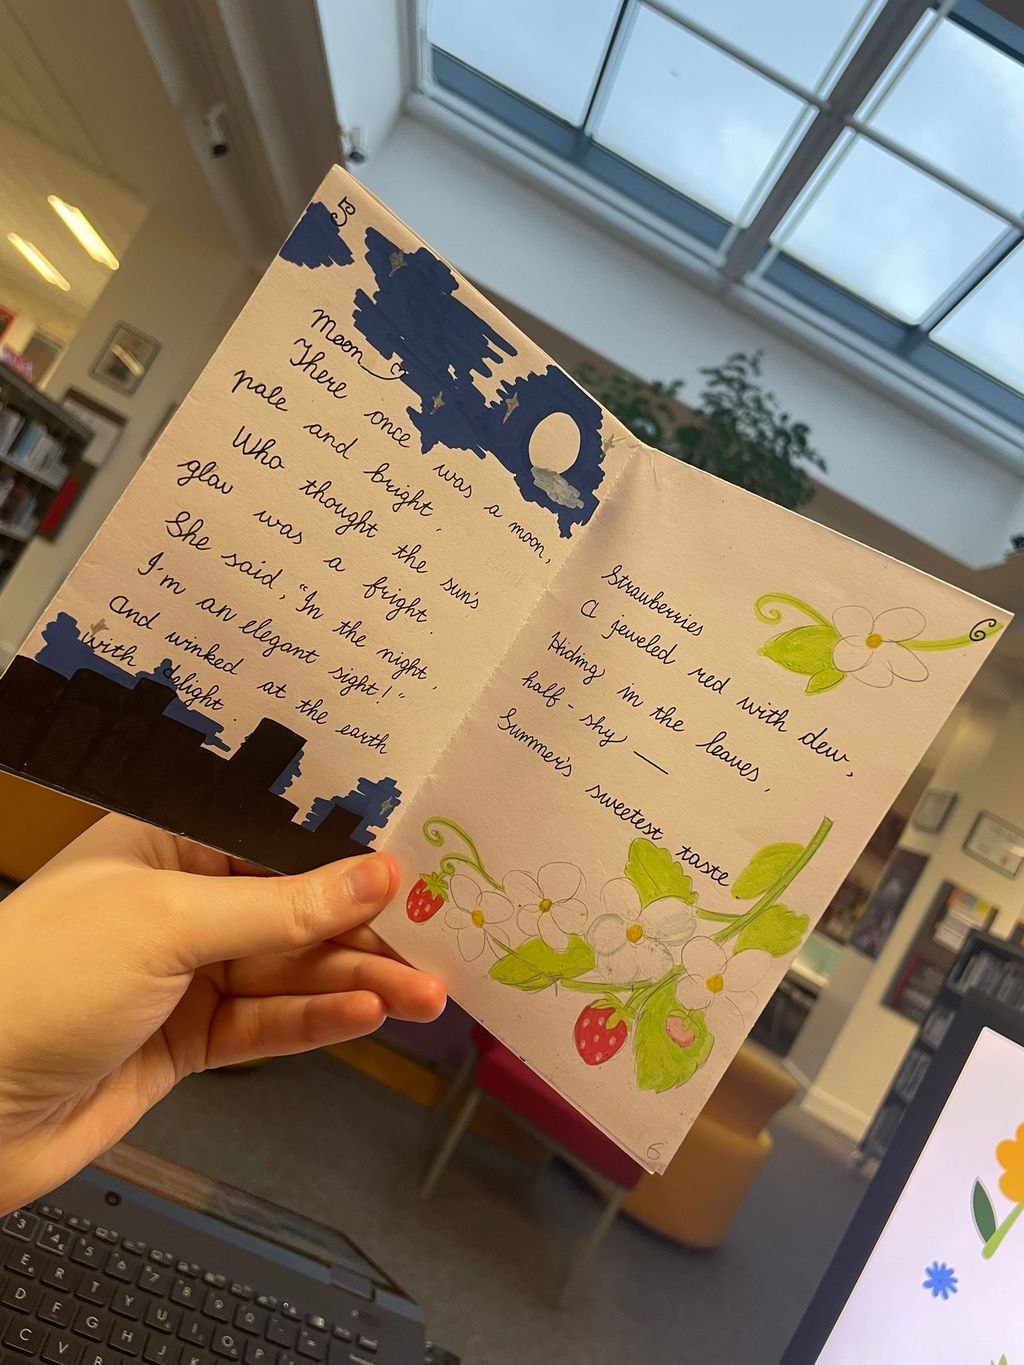 5
Moon
There once was a moon,
pale and bright,
Who thought the sun's
glow was a fright.
She said, "In the night,
I'm an elegant sight!"
and winked at the earth
with delight.
6
Strawberries
A jeweled red with dew,
Hiding in the leaves,
half-shy —
Summer's sweetest taste
6
3
4
5
6
7
8
9
E
R
T
Y
U
I
O
P
D
F
G
H
J
K
C
V
B